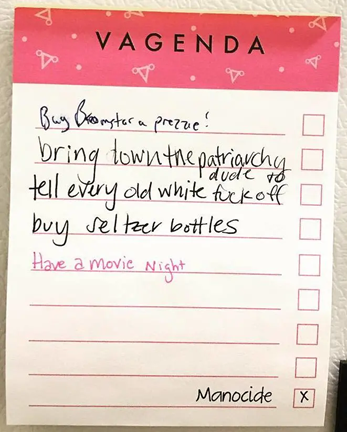 VAGENDA
Buy a prezzie!
bring down the patriarchy
tell every old white dude to fuck off
buy seltzer bottles
Have a movie Night
Manocide x